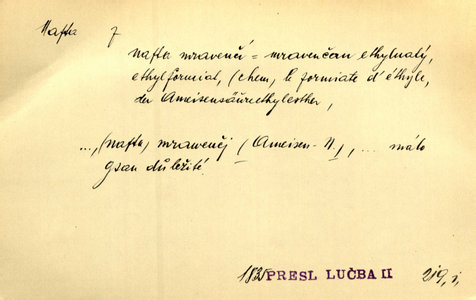 Nafta f
nafta mravenčí = mravenčan ethylnatý,
ethylformiat, (chem) le formiate d'éthyle,
der Ameisensäureethylester,
..., (nafta) mrawenčj (Ameisen-N.), ... málo
gsau důležité.
PRESL LUČBA II 219, i,